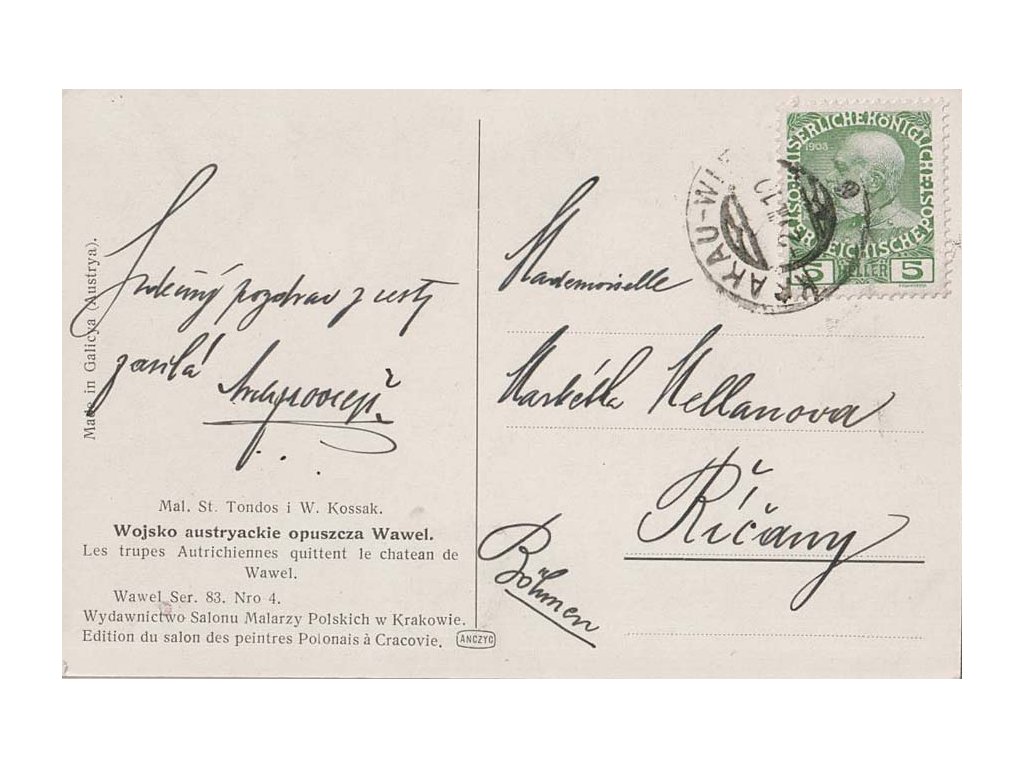 Made in Galicya (Austrya).
Srdečný pozdrav z cesty
zasílá
Mal. St. Tondos i W. Kossak.
Wojsko austryackie opuszcza Wawel.
Les trupes Autrichiennes quittent le chatean de
Wawel.
Wawel Ser. 83. Nro 4.
Wydawnictwo Salonu Malarzy Polskich w Krakowie.
Edition du salon des peintres Polonais à Cracovie.
ANCZYC
Mademoiselle
Markétka Mellanova
Říčany
Böhmen
KAISERLICHE KÖNIGLICHE
ÖSTERREICHISCHE POST
1908
5 HELLER 5
KRAKAU-W